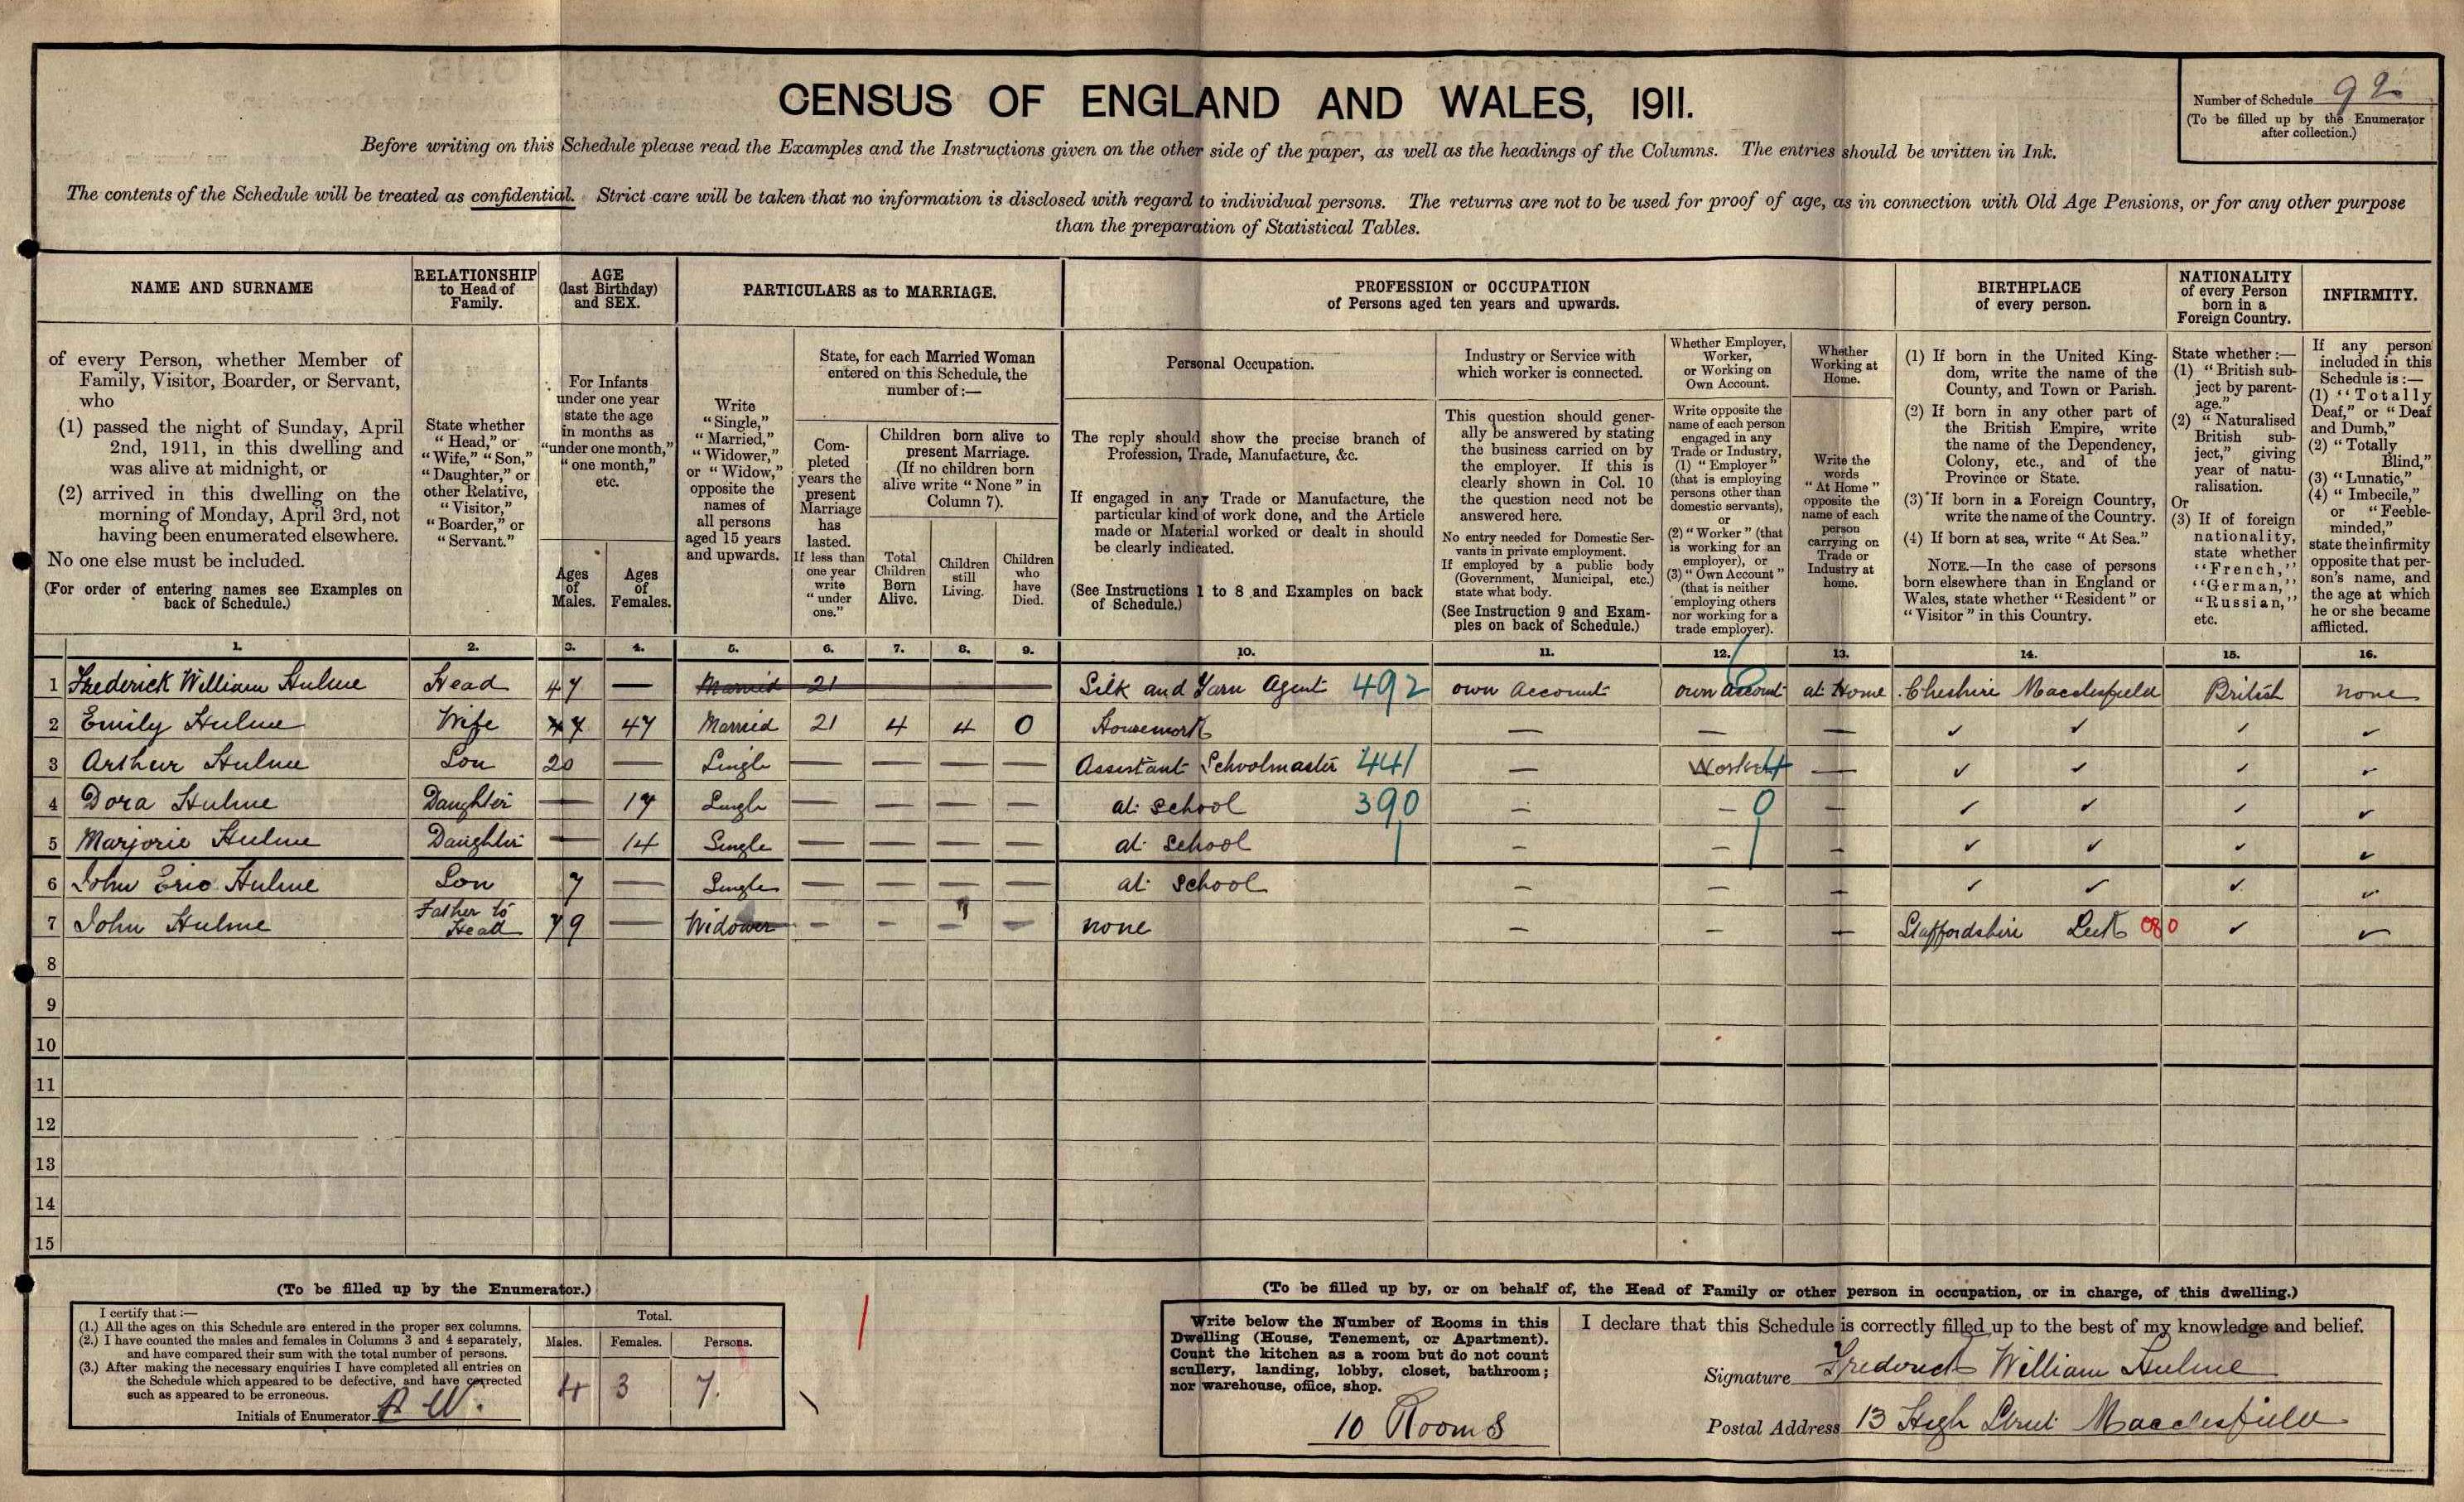 CENSUS OF ENGLAND AND WALES, 1911.
Number of Schedule 92
(To be filled up by the Enumerator
after collection.)
Before writing on this Schedule please read the Examples and the Instructions given on the other side of the paper, as well as the headings of the Columns. The entries should be written in Ink.
The contents of the Schedule will be treated as confidential. Strict care will be taken that no information is disclosed with regard to individual persons. The returns are not to be used for proof of age, as in connection with Old Age Pensions, or for any other purpose
than the preparation of Statistical Tables.
NAME AND SURNAME
of every Person, whether Member of
Family, Visitor, Boarder, or Servant,
who
(1) passed the night of Sunday, April
2nd, 1911, in this dwelling and
was alive at midnight, or
(2) arrived in this dwelling on the
morning of Monday, April 3rd, not
having been enumerated elsewhere.
No one else must be included.
(For order of entering names see Examples on
back of Schedule.)
RELATIONSHIP
to Head of
Family.
State whether
"Head," or
"Wife," "Son,"
"Daughter," or
other Relative,
"Visitor,"
"Boarder," or
"Servant."
AGE
(last Birthday)
and SEX.
For Infants
under one year
state the age
in months as
"under one month,"
"one month,"
etc.
Ages
of
Males.
Ages
of
Females.
PARTICULARS as to MARRIAGE.
Write
"Single,"
"Married,"
"Widower,"
or "Widow,"
opposite the
names of
all persons
aged 15 years
and upwards.
State, for each Married Woman
entered on this Schedule, the
number of:—
Com-
pleted
years the
present
Marriage
has
lasted.
If less than
one year
write
"under
one."
Children born alive to
present Marriage.
(If no children born
alive write "None" in
Column 7).
Total
Children
Born
Alive.
Children
still
Living.
Children
who
have
Died.
PROFESSION or OCCUPATION
of Persons aged ten years and upwards.
Personal Occupation.
The reply should show the precise branch of
Profession, Trade, Manufacture, &c.
If engaged in any Trade or Manufacture, the
particular kind of work done, and the Article
made or Material worked or dealt in should
be clearly indicated.
(See Instructions 1 to 8 and Examples on back
of Schedule.)
Industry or Service with
which worker is connected.
This question should gener-
ally be answered by stating
the business carried on by
the employer. If this is
clearly shown in Col. 10
the question need not be
answered here.
No entry needed for Domestic Ser-
vants in private employment.
If employed by a public body
(Government, Municipal, etc.)
state what body.
(See Instruction 9 and Exam-
ples on back of Schedule.)
Whether Employer,
Worker,
or Working on
Own Account.
Write opposite the
name of each person
engaged in any
Trade or Industry,
(1) "Employer"
(that is employing
persons other than
domestic servants),
or
(2) "Worker" (that
is working for an
employer), or
(3) "Own Account"
(that is neither
employing others
nor working for a
trade employer).
Whether
Working at
Home.
Write the
words
"At Home"
opposite the
name of each
person
carrying on
Trade or
Industry at
home.
BIRTHPLACE
of every person.
(1) If born in the United King-
dom, write the name of the
County, and Town or Parish.
(2) If born in any other part of
the British Empire, write
the name of the Dependency,
Colony, etc., and of the
Province or State.
(3) If born in a Foreign Country,
write the name of the Country.
(4) If born at sea, write "At Sea."
NOTE.—In the case of persons
born elsewhere than in England or
Wales, state whether "Resident" or
"Visitor" in this Country.
NATIONALITY
of every Person
born in a
Foreign Country.
State whether:—
(1) "British sub-
ject by parent-
age."
(2) "Naturalised
British sub-
ject," giving
year of natu-
ralisation.
Or
(3) If of foreign
nationality,
state whether
"French,"
"German,"
"Russian,"
etc.
INFIRMITY.
If any person
included in this
Schedule is:—
(1) "Totally
Deaf," or "Deaf
and Dumb,"
(2) "Totally
Blind,"
(3) "Lunatic,"
(4) "Imbecile,"
or "Feeble-
minded,"
state the infirmity
opposite that per-
son's name, and
the age at which
he or she became
afflicted.
1. 2. 3. 4. 5. 6. 7. 8. 9. 10. 11. 12. 13. 14. 15. 16.
1 Frederick William Hulme Head 47 — Married 21 Silk and Yarn Agent 492 own Account own Account at Home Cheshire Macclesfield British none
2 Emily Hulme Wife 47 47 Married 21 4 4 0 Housework — — — ✓ ✓ ✓ ✓
3 Arthur Hulme Son 20 — Single — — — — Assistant Schoolmaster 441 — Worker — ✓ ✓ ✓ ✓
4 Dora Hulme Daughter — 17 Single — — — — at school 390 — — 0 — ✓ ✓ ✓ ✓
5 Marjorie Hulme Daughter — 14 Single — — — — at school — — — ✓ ✓ ✓ ✓
6 John Eric Hulme Son 7 — Single — — — — at school — — — ✓ ✓ ✓ ✓
7 John Hulme Father to Head 79 — Widower — — — — none — — — Staffordshire Leek 080 ✓ ✓
8
9
10
11
12
13
14
15
(To be filled up by the Enumerator.)
I certify that:—
(1.) All the ages on this Schedule are entered in the proper sex columns.
(2.) I have counted the males and females in Columns 3 and 4 separately,
and have compared their sum with the total number of persons.
(3.) After making the necessary enquiries I have completed all entries on
the Schedule which appeared to be defective, and have corrected
such as appeared to be erroneous.
Initials of Enumerator
Total.
Males. Females. Persons.
4 3 7.
(To be filled up by, or on behalf of, the Head of Family or other person in occupation, or in charge, of this dwelling.)
Write below the Number of Rooms in this
Dwelling (House, Tenement, or Apartment).
Count the kitchen as a room but do not count
scullery, landing, lobby, closet, bathroom;
nor warehouse, office, shop.
10 Rooms
I declare that this Schedule is correctly filled up to the best of my knowledge and belief.
Signature Frederick William Hulme
Postal Address 13 High Street Macclesfield